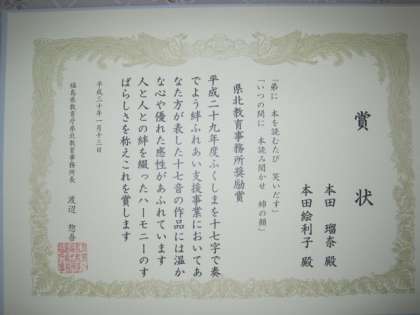 賞状
本田 瑠奈 殿
本田絵利子 殿
「弟に 本を読むたび 笑いだす」
「いつの間に 本読み聞かせ 姉の顔」
県北教育事務所奨励賞
平成二十九年度ふくしまを十七字で奏
でよう絆ふれあい支援事業においてあ
なた方が表した十七音の作品には温か
な心や優れた感性があふれています
人と人との絆を綴ったハーモニーのす
ばらしさを称えこれを賞します
平成三十年一月十三日
福島県教育庁県北教育事務所長 渡辺 惣吾